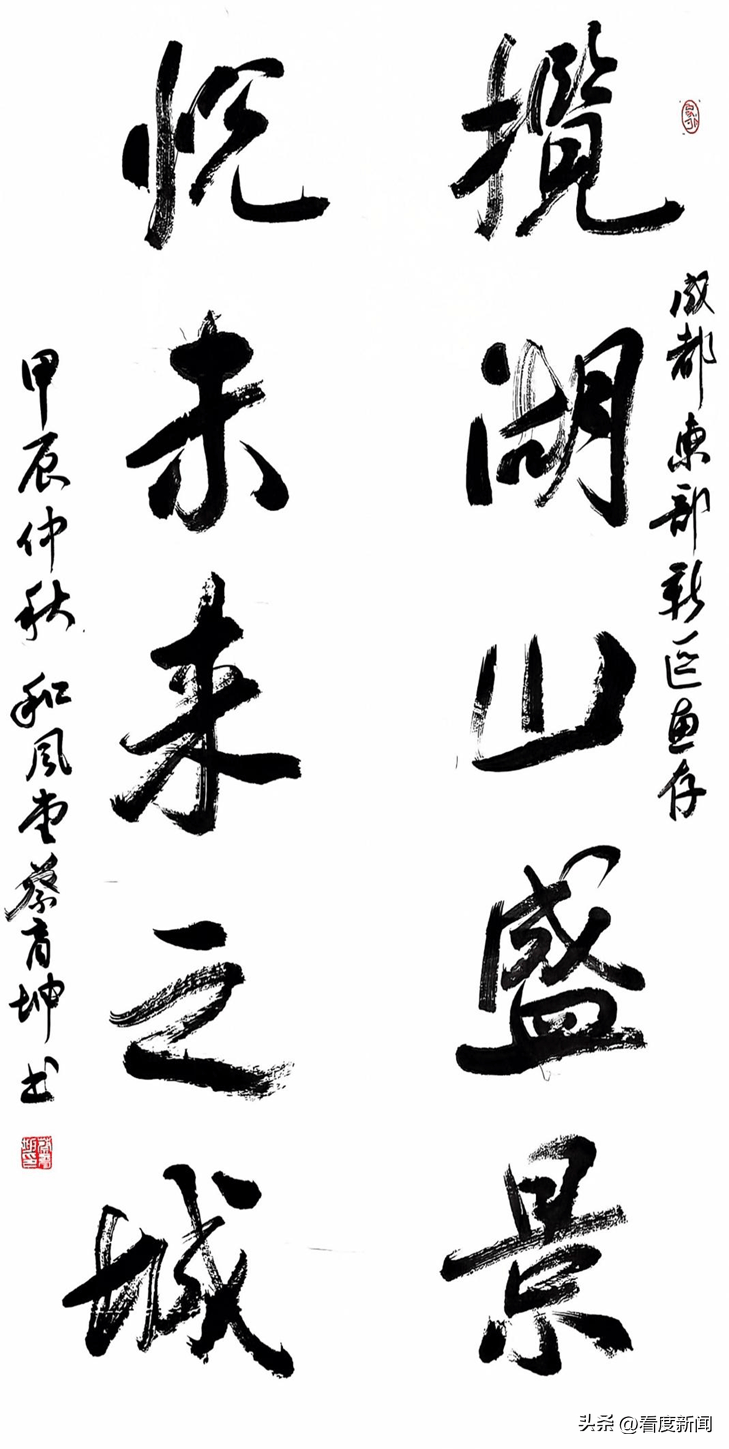 成都東部新区惠存
攬湖山盛景
悦未来之城
甲辰仲秋 和風堂蔡育坤书
头条 @看度新闻